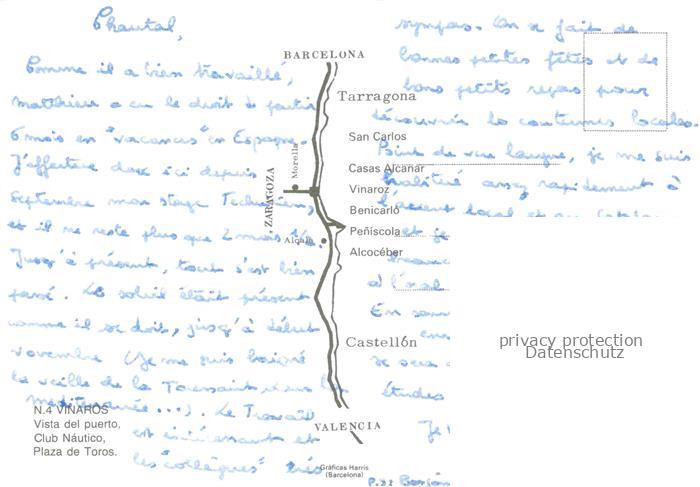 Chantal,
Comme il a bien travaillé,
Matthieu a eu le droit de partir
6 mois en "vacances" en Espagne.
J'effectue donc ici depuis
Septembre mon stage Technicien,
et il ne reste plus que 2 mois 1/2.
Jusqu'à présent, tout s'est bien
passé. Le soleil était présent
comme il se doit, jusqu'à début
novembre (je me suis baigné
la veille de la Toussaint dans la
méditerranée ...). Le Travail
est intéressant et
les "collègues" très
sympas. On se fait de
bonnes petites fêtes et de
bons petits repas pour
découvrir les coutumes locales.
Point de vue langue, je me suis
habitué assez rapidement à
l'accent local et au
et je
à l'oral
En som
je sera
études
Je
P.S:
BARCELONA
Tarragona
San Carlos
Morella
Casas Alcanar
ZARAGOZA
Vinaroz
Benicarló
Peñíscola
Alcalá
Alcocéber
Castellón
VALENCIA
N.4 VINARÓS
Vista del puerto,
Club Náutico,
Plaza de Toros.
Gráficas Harris
(Barcelona)
privacy protection
Datenschutz